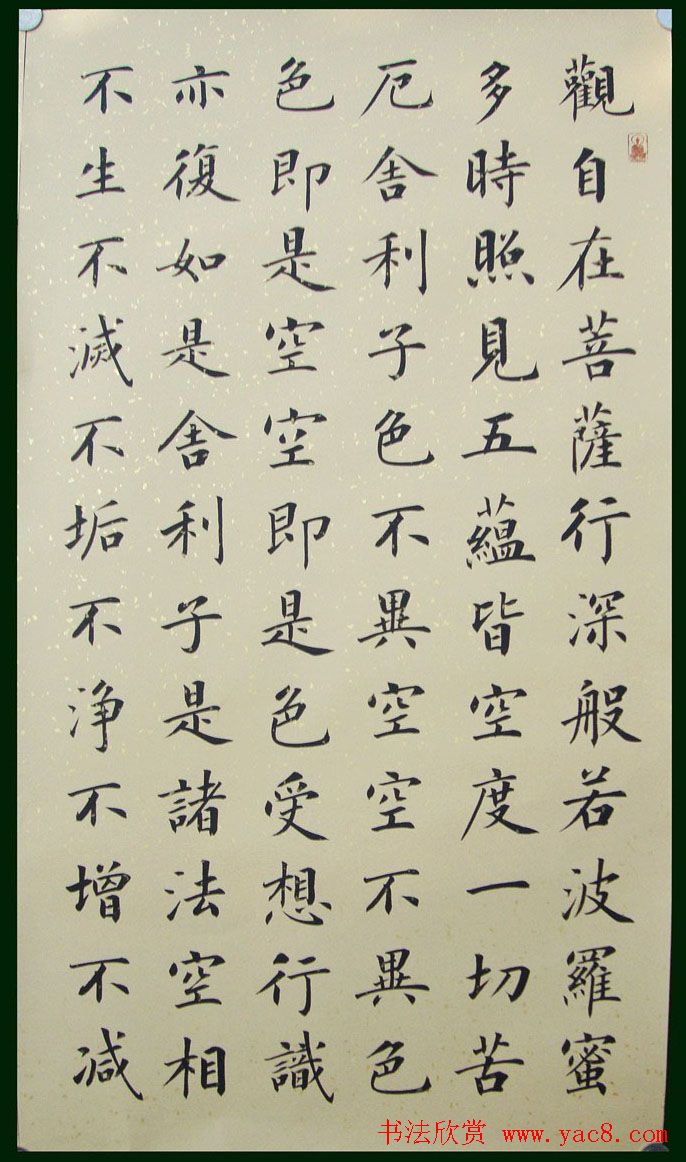 觀自在菩薩行深般若波羅蜜
多時照見五蘊皆空度一切苦
厄舍利子色不異空空不異色
色即是空空即是色受想行識
亦復如是舍利子是諸法空相
不生不滅不垢不淨不增不減
书法欣赏 www.yac8.com